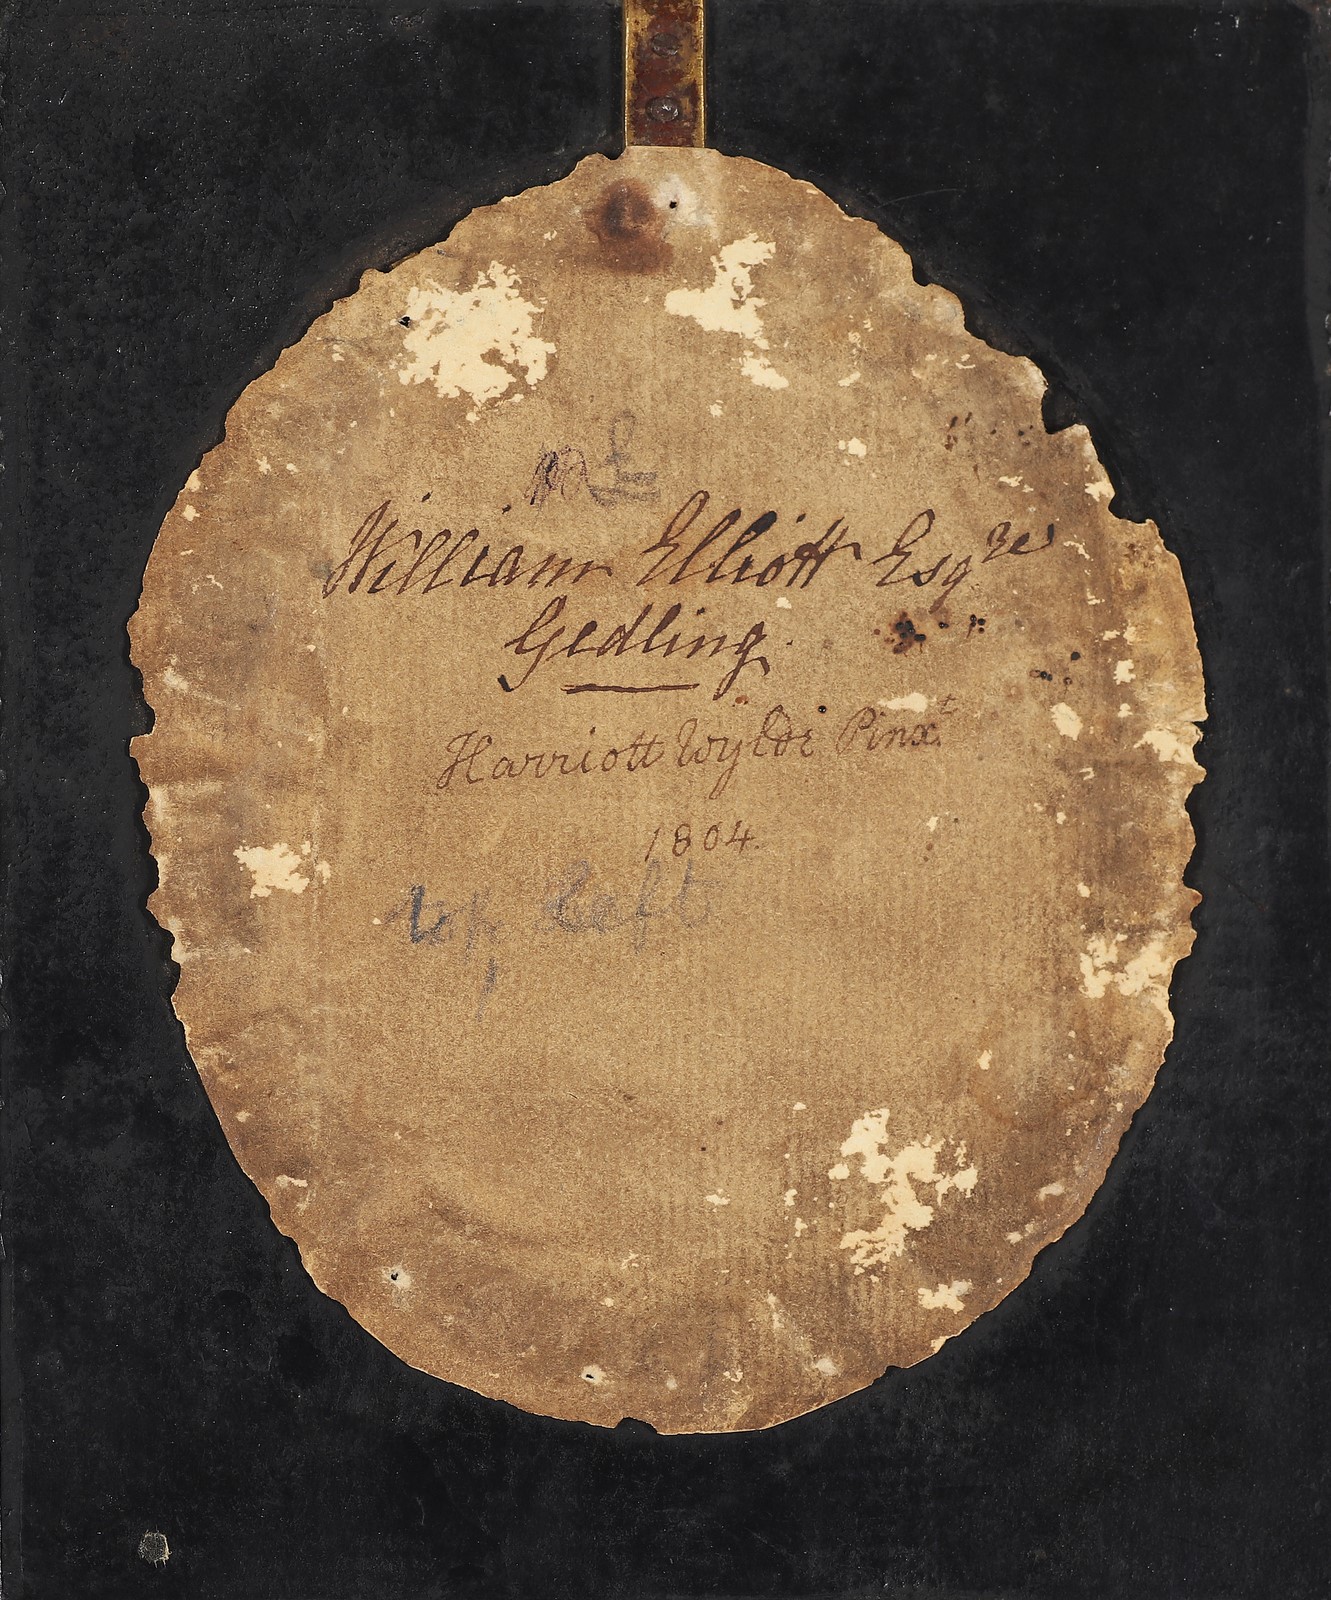 William Elliott Esqre
Gedling.
Harriott Wylde Pinxt
1804.
top Left